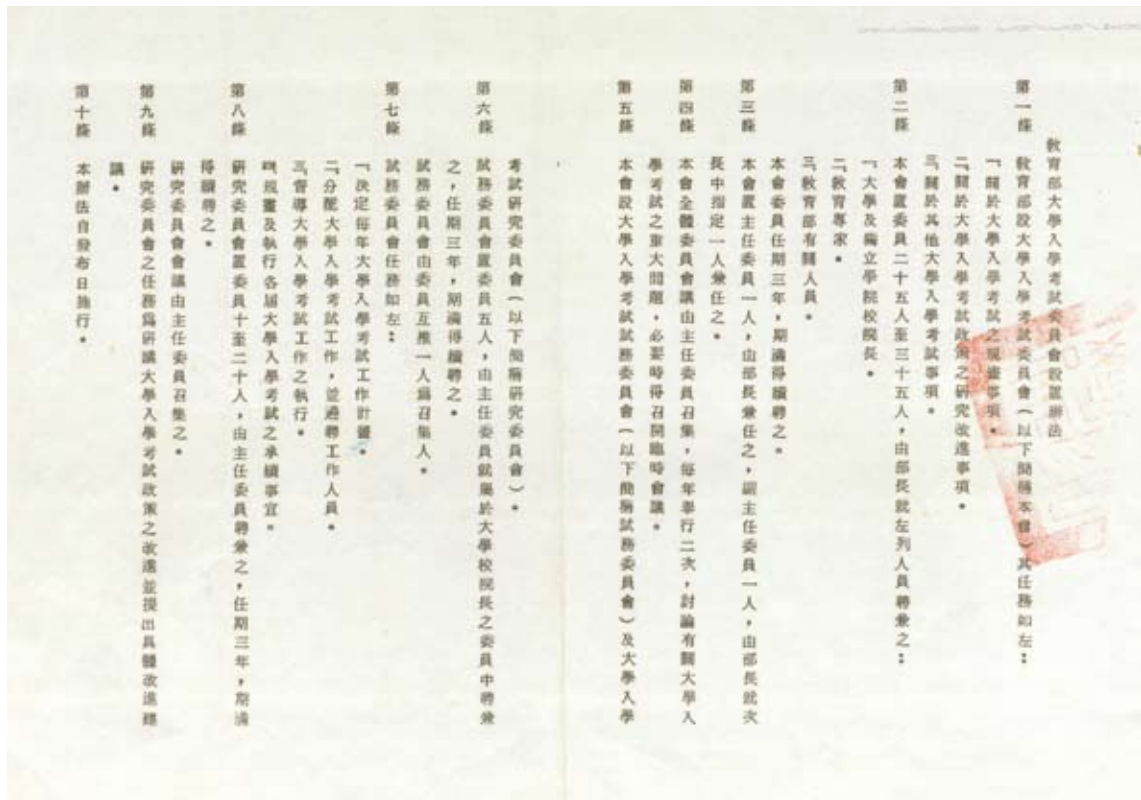 教育部大學入學考試委員會設置辦法
第一條 教育部設大學入學考試委員會(以下簡稱本會)其任務如左:
一、關於大學入學考試之規畫事項。
二、關於大學入學考試政策之研究改進事項。
三、關於其他大學入學考試事項。
第二條 本會置委員二十五人至三十五人,由部長就左列人員聘兼之:
一、大學及獨立學院校院長。
二、教育專家。
三、教育部有關人員。
本會委員任期三年,期滿得續聘之。
第三條 本會置主任委員一人,由部長兼任之,副主任委員一人,由部長就次
長中指定一人兼任之。
第四條 本會全體委員會議由主任委員召集,每年舉行二次,討論有關大學入
學考試之重大問題,必要時得召開臨時會議。
第五條 本會設大學入學考試試務委員會(以下簡稱試務委員會)及大學入學
考試研究委員會(以下簡稱研究委員會)。
第六條 試務委員會置委員五人,由主任委員就屬於大學校院長之委員中聘兼
之,任期三年,期滿得續聘之。
試務委員會由委員互推一人為召集人。
第七條 試務委員會任務如左:
一、決定每年大學入學考試工作計畫。
二、分配大學入學考試工作,並遴聘工作人員。
三、督導大學入學考試工作之執行。
四、規畫及執行各屆大學入學考試之承續事宜。
第八條 研究委員會置委員十至二十人,由主任委員聘兼之,任期三年,期滿
得續聘之。
研究委員會會議由主任委員召集之。
第九條 研究委員會之任務為研議大學入學考試政策之改進並提出具體改進建
議。
第十條 本辦法自發布日施行。